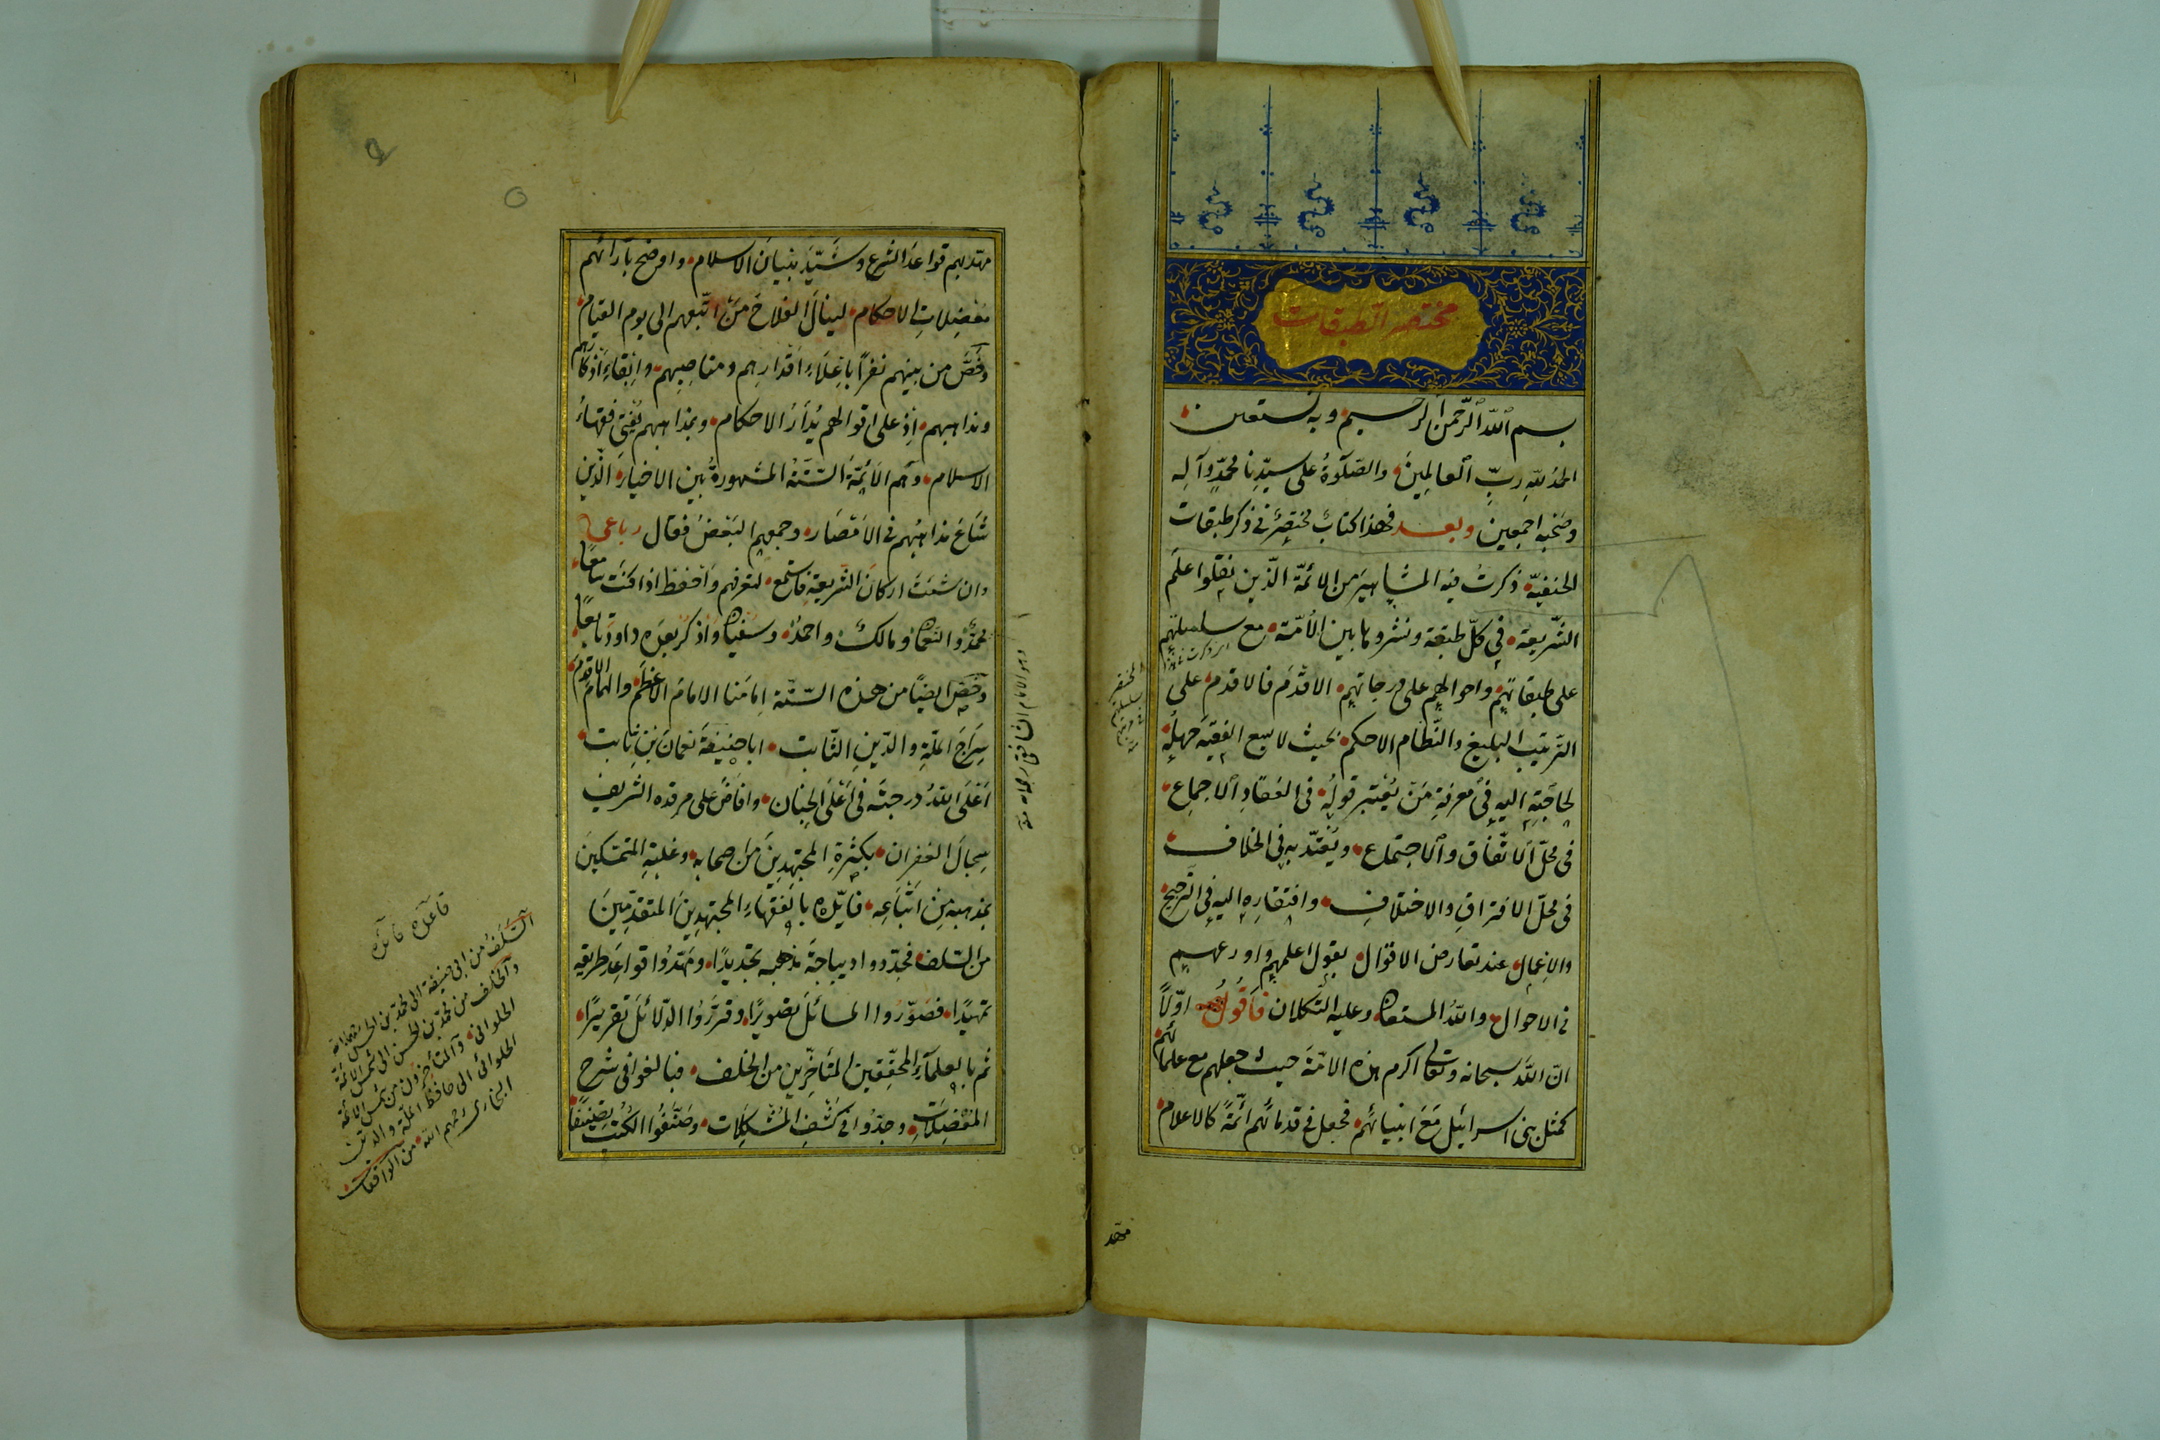 مختصر الطبقات
بسم الله الرحمن الرحيم وبه نستعين
الحمد لله ربّ العالمين والصّلوة على سيّدنا محمّد وآله
وصحبه اجمعين وبعد فهذا كتابٌ مختصرٌ في ذكر طبقات
الحنفيّة ذكرتُ فيه المشاهيرَ من الائمّة الّذين نقلوا علم
الشّريعة في كلّ طبقة ونشروها بين الأمّة مع سلسلتهم
على طبقاتهم واحوالهم على درجاتهم الاقدم فالاقدم على
الترتيب البليغ والنّظام الاحكم بحيث لا يسع الفقيهَ جهلُه
لحاجته اليه في معرفة مَن يُعتبر قولُه في انعقاد الاجماع
في محلّ الاتّفاق والاجتماع ويُعتدّ به في الخلاف
في محلّ الافتراق والاختلاف وافتقاره اليه في الترجيح
والاعمال عند تعارض الاقوال بقول اعلمهم واورعهم
في الاحوال والله المستعان وعليه التكلان فاقول اوّلاً
انّ الله سبحانه وتعالى اكرم هذه الامّة حيث جعلهم مع علمائهم
كمثل بنى اسرائيل مَعَ انبيائهم فجعل في قدمائهم ائمّةً كالاعلام
مهّد
مهّد بهم قواعدَ الشرع وشيّد بنيان الاسلام واوضح بآرائهم
معضِلات الاحكام لينالَ الفلاحَ مَنْ اتّبعهم الى يوم القيام
وخصَّ من بينهم نفراً باعلاءِ اقدارهم ومناصبهم وابقاءِ اذكارهم
ومذاهبهم اذ على اقوالهم يُدارُ الاحكام وبمذاهبهم يُفتى فقهاءُ
الاسلام وهم الأئمّة السّتّة المشهورةُ بين الاخيار الّذين
شاعَ مذاهبُهم في الأمْصَار وجمعهم البَعْضُ فقال رباعى
وان شئتَ اركانَ الشّريعة فاستمع لتعرفهم واحفظ اذا كنتَ سامعًا
محمّدٌ والنعمان ومالكٌ واحمدُ وسفيان واذكر بعدَه داود تابعًا
وخصّ ايضًا من هذه السّتّة امامَنا الامامَ الاعظم والهمامَ الاقدم
سِراجَ الملّة والدّين الثّابت اباحنيفةَ نعمانَ بنَ ثابت
اَعْلَى اللهُ درجتَه في اَعْلَى الجنان وافاضَ على مرقده الشريف
سِجالَ الغفران بكثرة المجتهدينَ من اصحابه وغلبة المتمسّكينَ
بمذهبه مِن اَتْباعِه فايّده بالفقهاءِ المجتهدينَ المتقدّمينَ
من السّلف فجدّدوا ديباجةَ مذهبه تجديدًا ومهّدُوا قواعِدَ طريقه
تمهيدًا فصوّروا المسائلَ تصويرًا وقرّرُوا الدّلائلَ تقريرًا
ثمّ بالعلماءِ المحقّقين المتأخّرين من الخلف فبالغوا في شرح
المعْضِلات وجدّوا في كَشْفِ المُشْكِلَات وصنّفُوا الكُتبَ تصنيفًا
قاعدة فائدة
السّلفُ من ابى حنيفة الى محمّد بن الحسن
والخلفُ من محمّد بن الحسن الى شمس الائمّة
الحلوانى والمتأخّرون من شمس الائمّة
الحلوائى الى حافظ الملّة والدّين
البخارى رحمهم الله من الواقعات